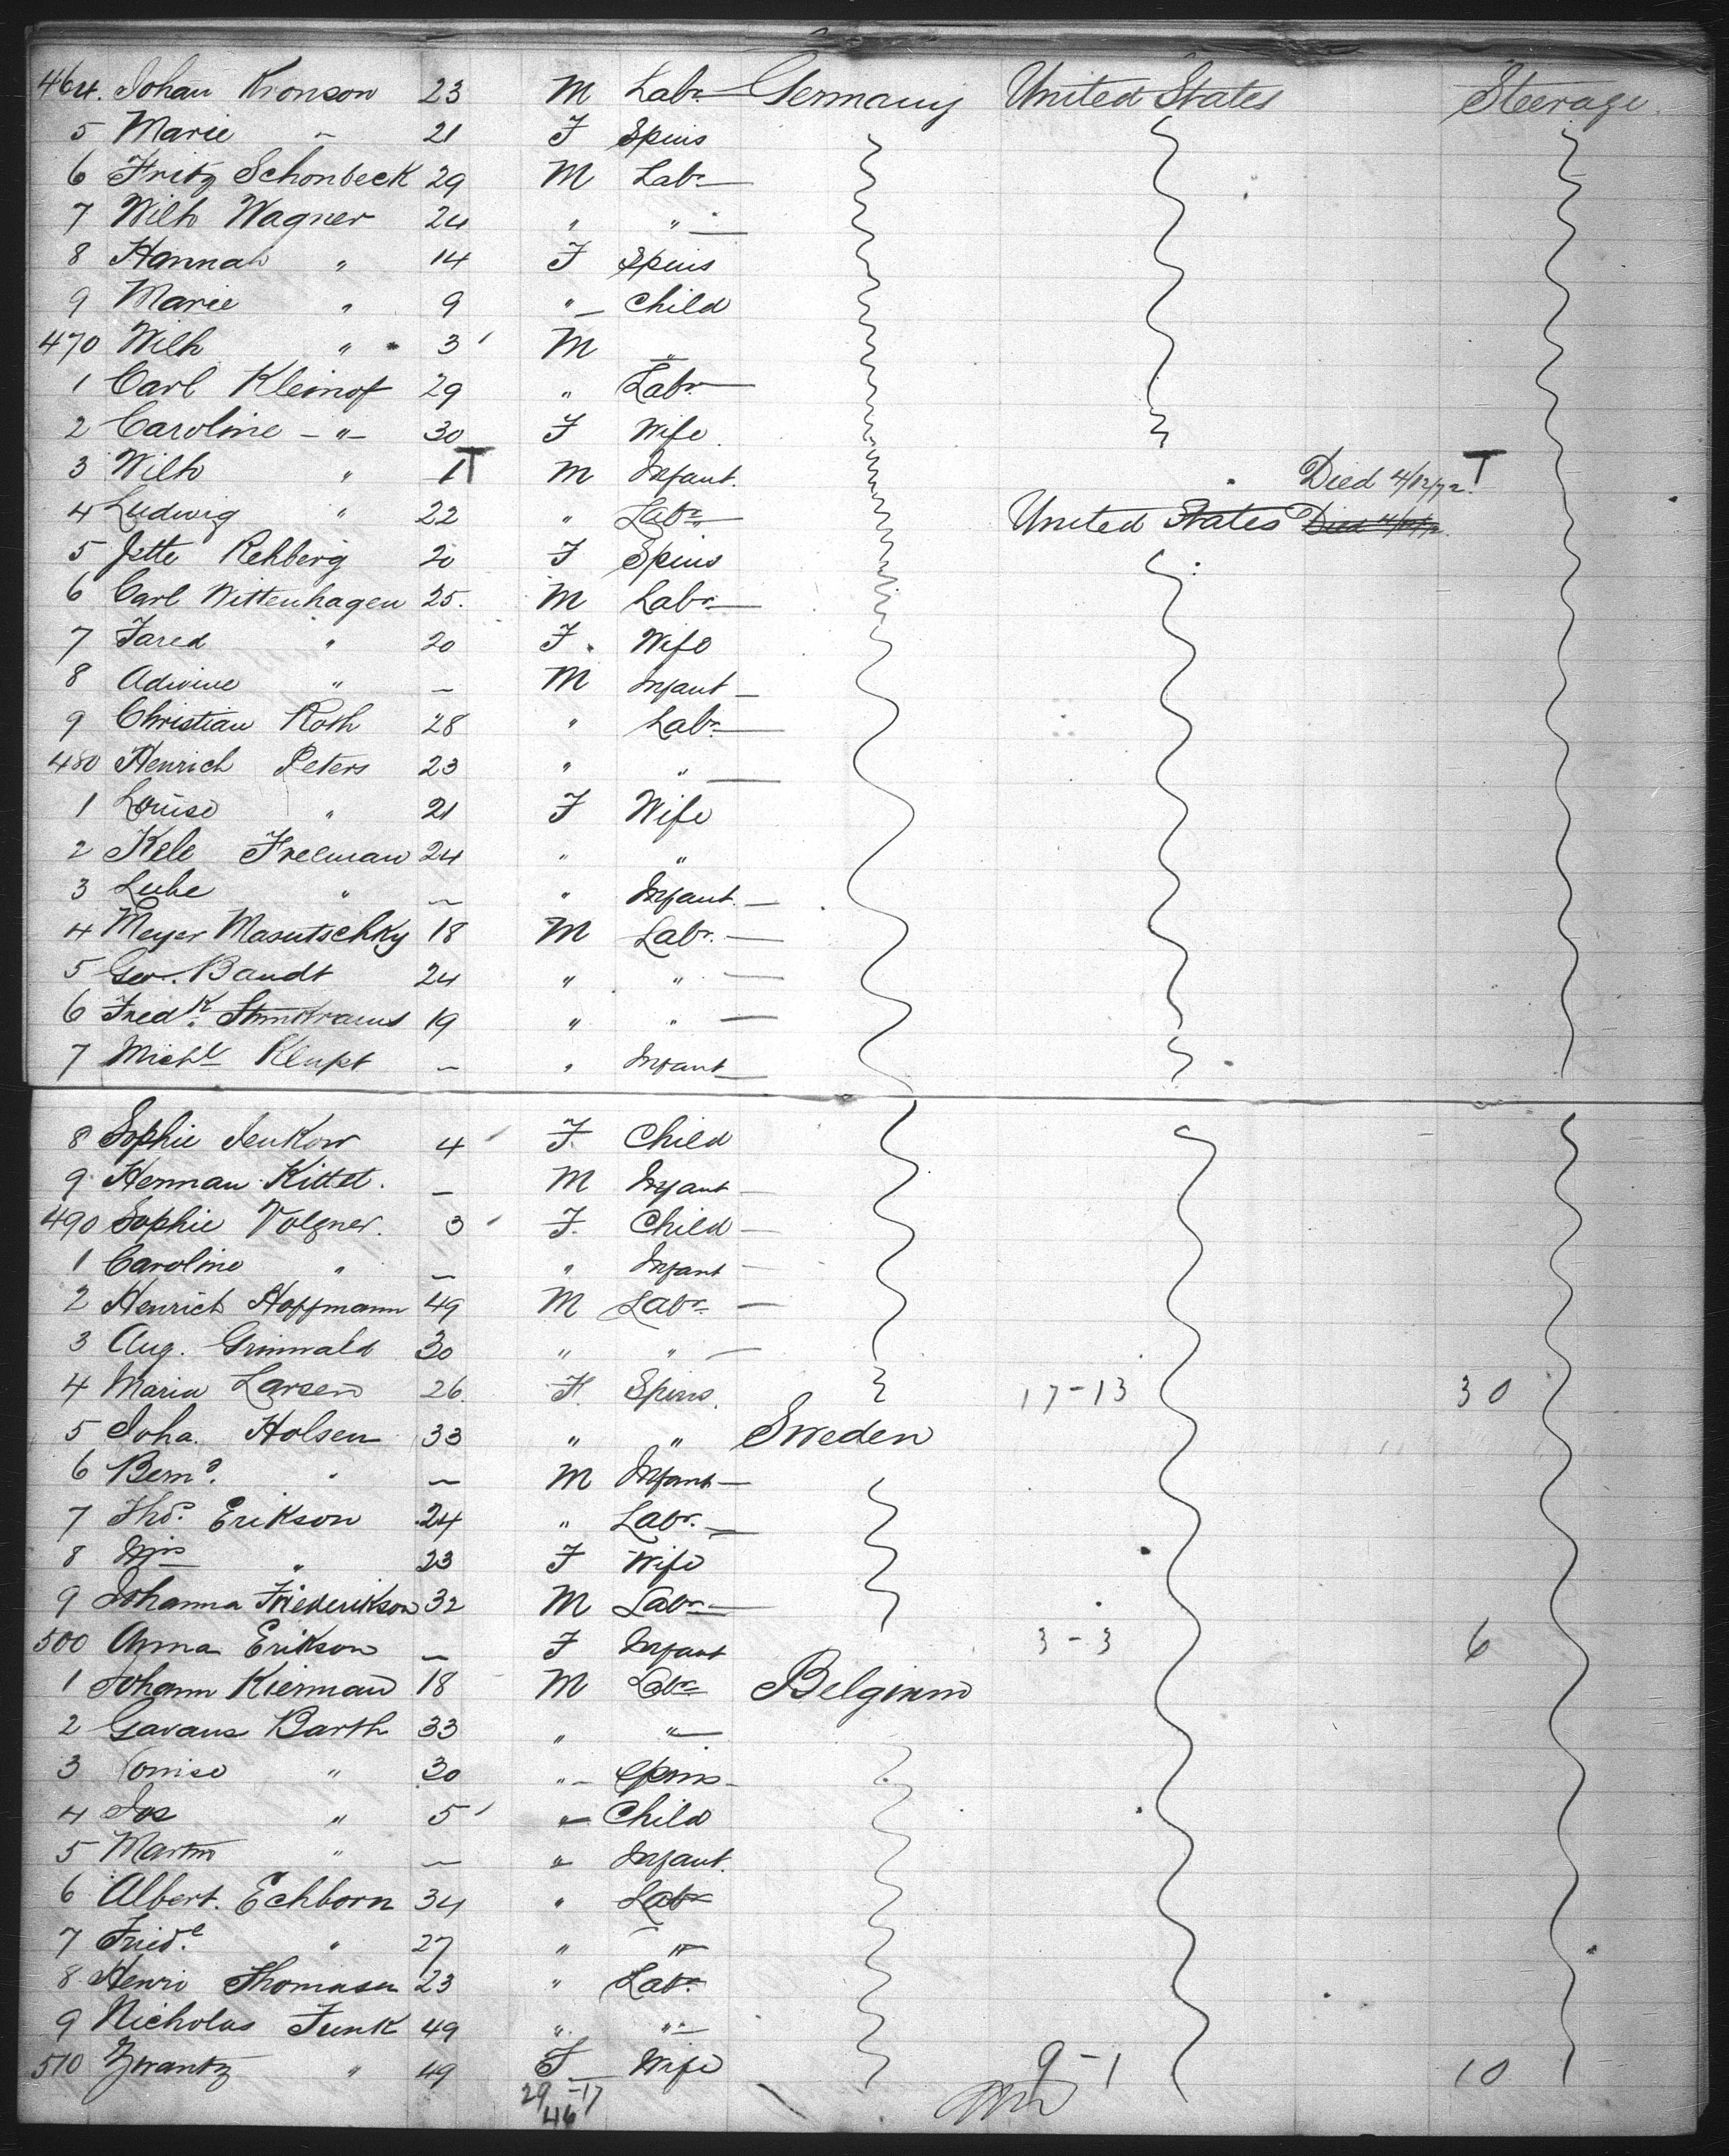 464. Johan Kronson 23 M Labr Germany United States Steerage
5 Marie " 21 F Spins
6 Fritz Schonbeck 29 M Labr
7 Wilh Wagner 24 " "
8 Hannah " 14 F Spins
9 Marie " 9 " Child
470 Wilh " 3 M "
1 Carl Kleinof 29 " Labr
2 Caroline " 30 F Wife
3 Wilh " 1 T M Infant. Died 4/12/72. T
4 Ludwig " 22 " Labr United States Died 4/12/72.
5 Jette Rehberg 20 F Spins
6 Carl Wittenhagen 25. M Labr
7 Fared " 20 F. Wife
8 " – M Infant
9 Christian Roth 28 " Labr
480 Henrich Peters 23 " "
1 Louise " 21 F Wife
2 Kele Freeman 24 " "
3 " – " Infant.
4 Meyer Masutschky 18 M Labr.
5 Geo. Bandt 24 " "
6 Fredk. 19 " "
7 Michl – " Infant
8 Sophie Jenkow 4 F. Child
9 Herman Kittet. – M Infant
490 Sophie Volgner. 3 F. Child
1 Caroline " – " Infant
2 Henrich Hoffmann 49 M Labr.
3 Aug. Grunwald 30 " "
4 Maria Larsen 26. F. Spins. 17-13 30
5 Joha. Holsen 33 " " Sweden
6 " – M Infant
7 Thos. Erikson 24 " Labr.
8 Mrs " 23 F Wife
9 Johanna Friederikson 32 M Labr
500 Anna Erikson – F Infant 3-3 6
1 Johann Kierman 18 M Labr Belgium
2 Barth 33 " "
3 Louise " 30 " Spins
4 Jos " 5 " Child
5 Martin " – " Infant.
6 Albert. Echborn 34 " Labr
7 Fried.e " 27 " "
8 Henri Thomasen 23 " Labr.
9 Nicholas Funk 49 " "
510 " 49 F Wife 9-1 10
29-17
46